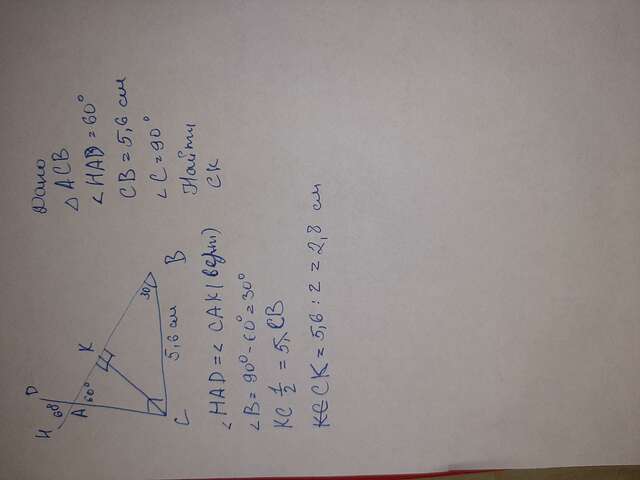 Дано
△ ACB
∠HAD = 60°
CB = 5,6 см
∠C = 90°
Найти
CK
H
D
60°
A
60°
K
30
B
5,6 см
C
∠HAD = ∠ CAK (верт)
∠B = 90° - 60° = 30°
KC ½ = CB
CK = 5,6 : 2 = 2,8 см